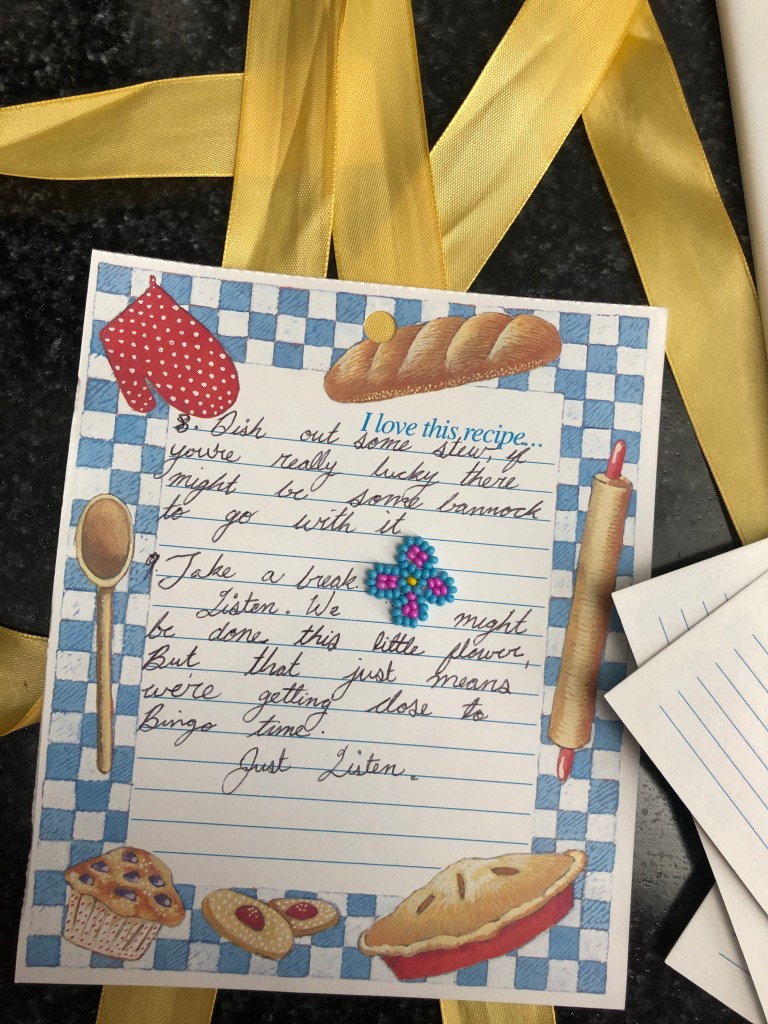 I love this recipe...
8. Dish out some stew, if
you're really lucky there
might be some bannock
to go with it
9 Take a break.
Listen. We might
be done this little flower,
But that just means
we're getting close to
Bingo time.
Just Listen.